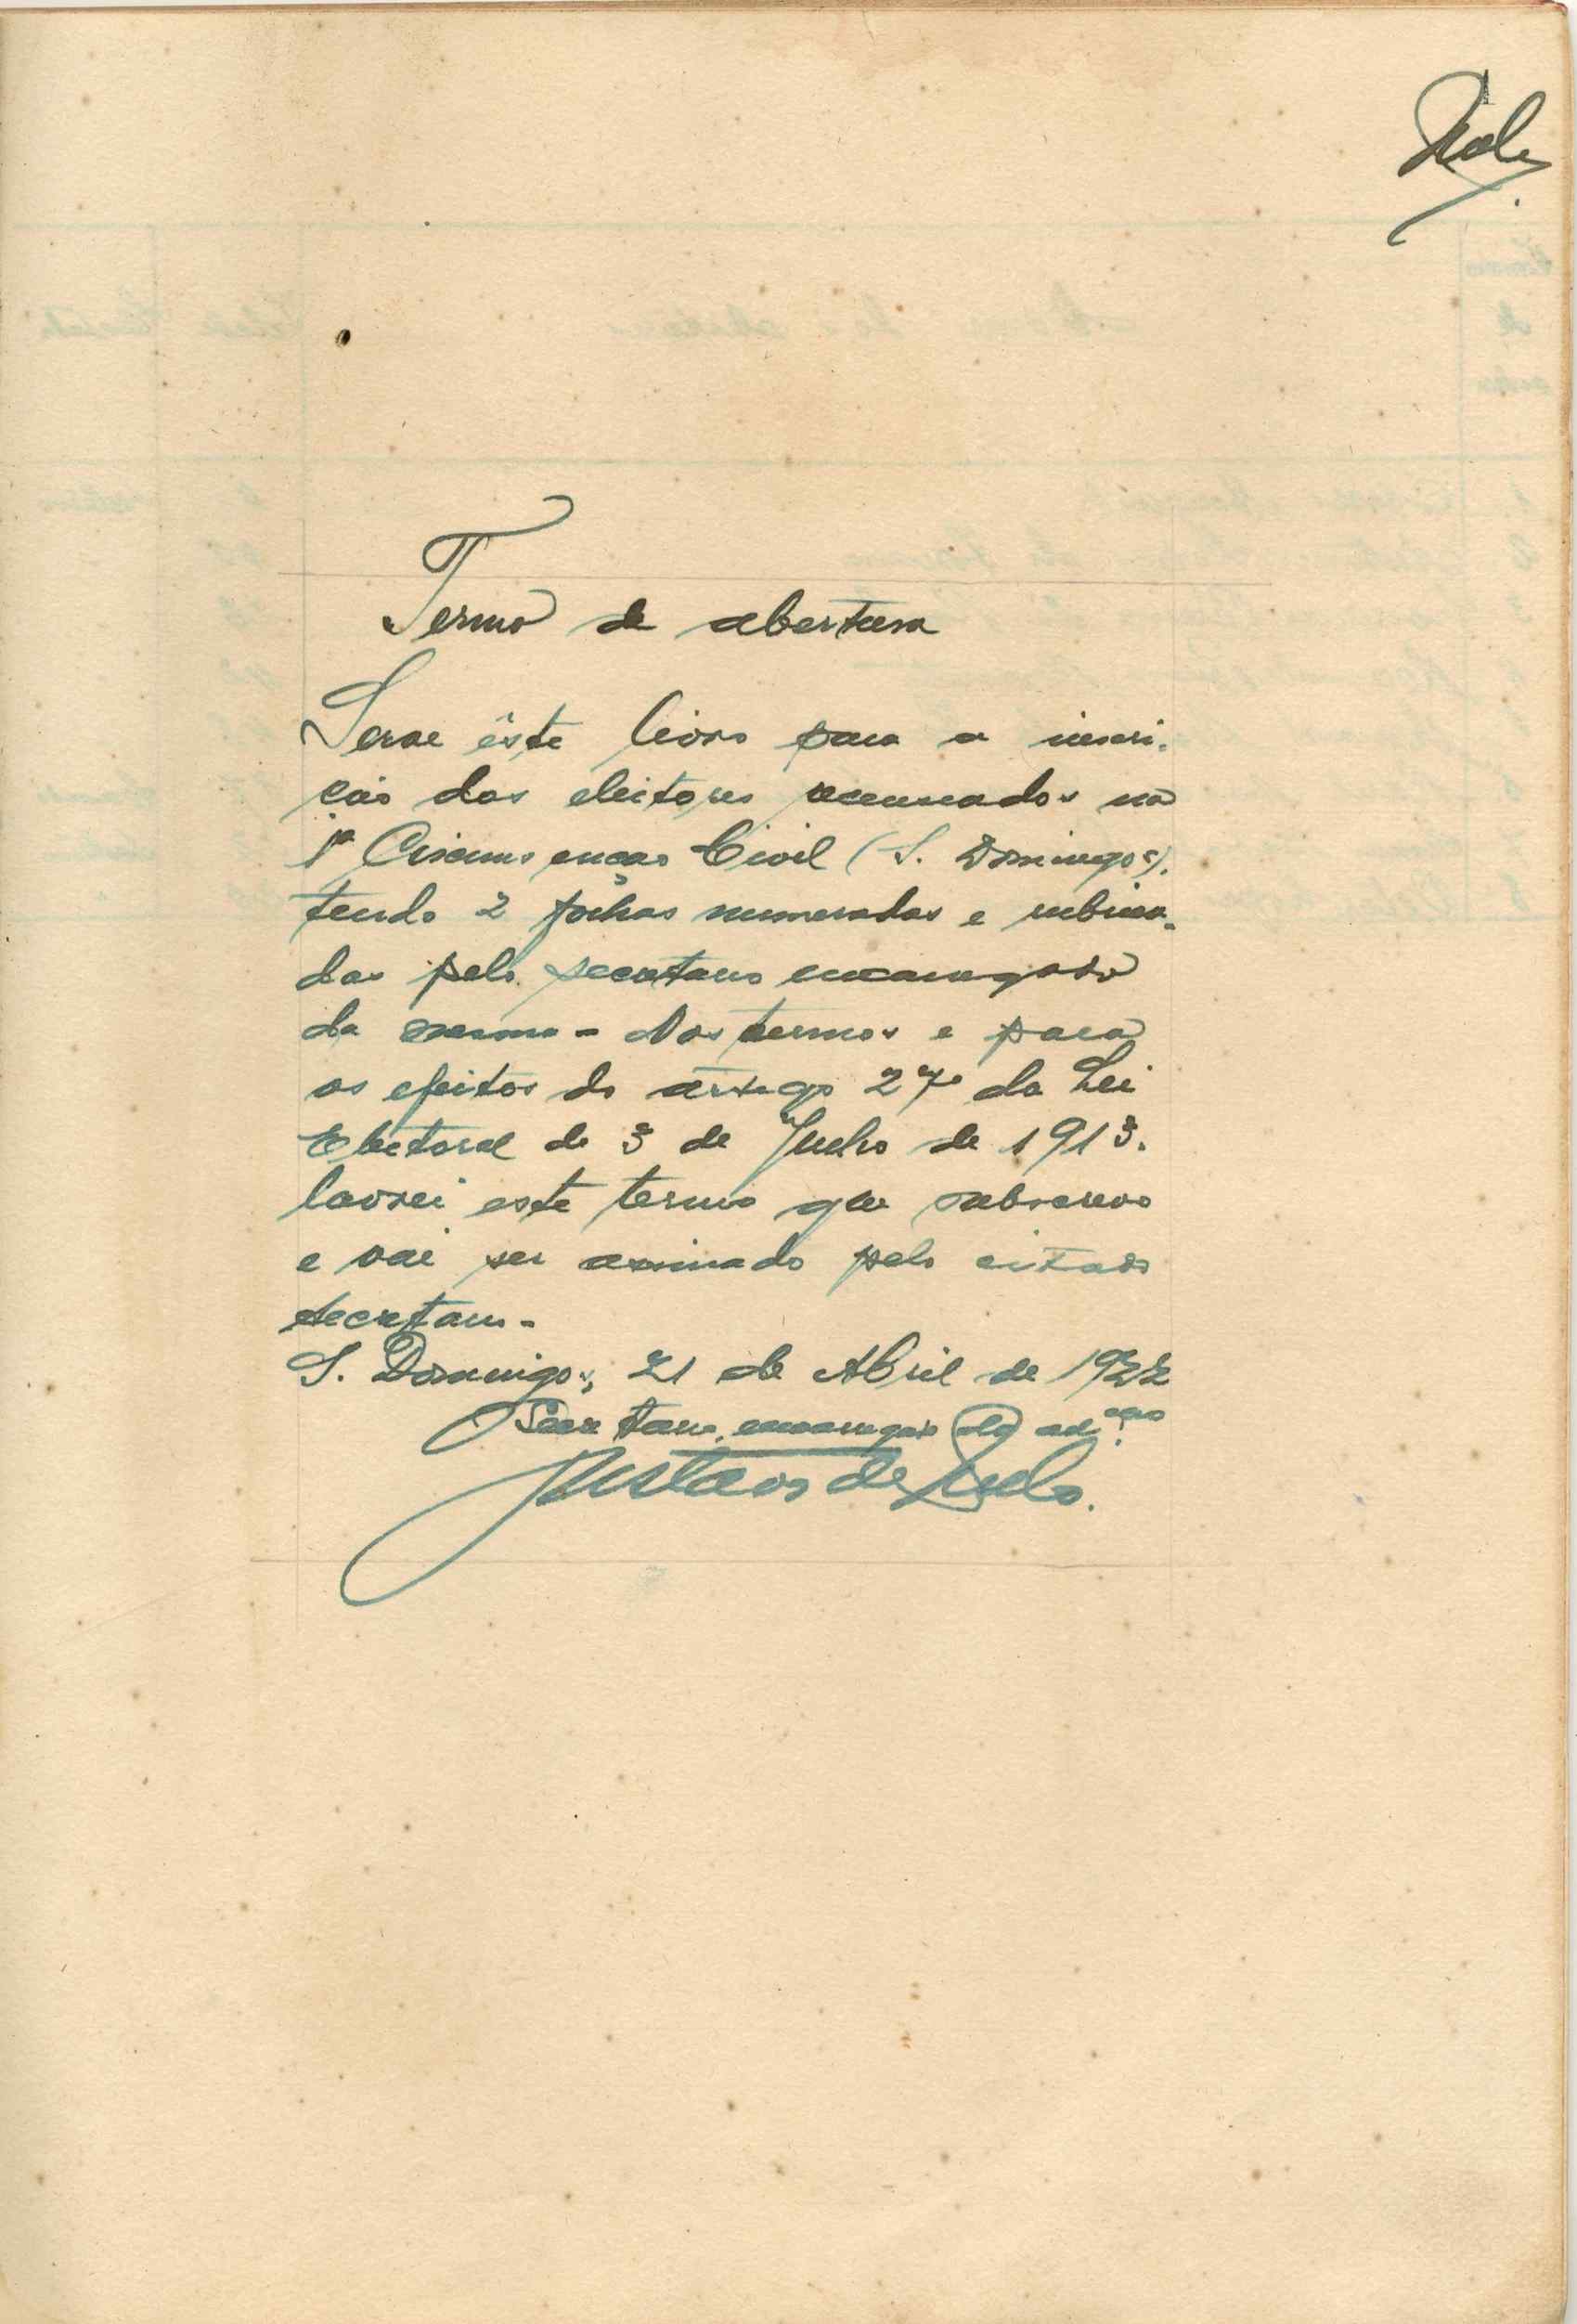 Termo de abertura
Serve êste livro para a inscri-
ção dos eleitores recenseados na
1ª Circunscrição Civil (S. Domingos).
tendo 2 folhas numeradas e rubrica-
das pelo secretario encarregado
da mesma - Nos termos e para
os efeitos do artigo 27º da Lei
Eleitoral de 3 de Julho de 1913.
lavrei este termo que subscrevo
e vai ser assinado pelo citado
secretario -
S. Domingos, 21 de Abril de 1922
O Secretario, encarregado da adᵐᶜᵃᵒ